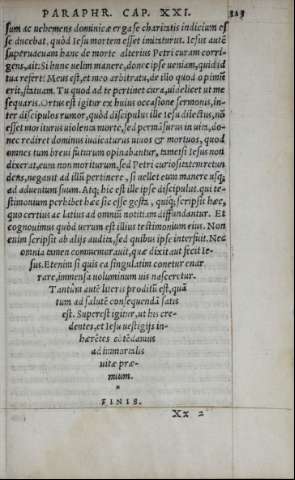 PARAPHR. CAP. XXI. 323
sum ac uehemens dominicæ erga se charitatis indicium es
se ducebat, quòd Iesu mortem esset imiturus. Iesus autē
superuacuam hanc de morte alterius Petri curam corri-
gens, ait: Si hunc uelim manere, donec ipse ueniam, quid id
tua refert? Meus est, et meo arbitratu, de illo quod optimū
erit, statuam. Tu quod ad te pertinet cura, uidelicet ut me
sequaris. Ortus est igitur ex huius occasione sermonis, in-
ter discipulos rumor, quòd discipulus ille Iesu dilectus, nō
esset moriturus uiolenta morte, sed permāsurus in uita, do-
nec rediret dominus iudicaturus uiuos & mortuos, quod
omnes tum breui futurum opinabantur, tametsi Iesus non
dixerat, eum non moriturum, sed Petri curiositatem retun
dens, negauit ad illū pertinere, si uellet eum manere usq;
ad aduentum suum. Atq; hic est ille ipse discipulus, qui te-
stimonium perhibet hæc sic esse gesta, quiq; scripsit hæc,
quo certius ac latius ad omniū notitiam diffundantur. Et
cognouimus quòd uerum est illius testimonium eius. Non
enim scripsit ab alijs audita, sed quibus ipse interfuit. Nec
omnia tamen commemorauit, quæ dixit aut fecit Ie-
sus. Etenim si quis ea singulatim conetur enar
rare, immensa uoluminum uis nasceretur.
Tantùm autē literis proditū est, quā
tum ad salutē consequendā satis
est. Superest igitur, ut his cre-
dentes, et Iesu uestigijs in-
hærētes cōtēdamus
ad immortalis
uitæ præ-
mium.
*
FINIS.
Xx 2